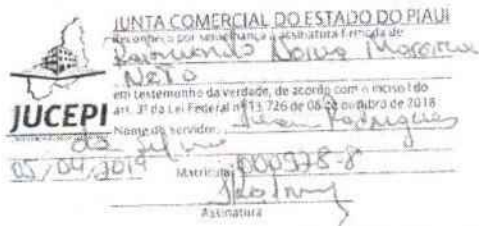 JUNTA COMERCIAL DO ESTADO DO PIAUÍ
Reconheço por semelhança a assinatura firmada de
Raimundo Noiva Moreira
Neto
em testemunho da verdade, de acordo com o inciso I do
art. 3º da Lei Federal nº 13.726 de 08 de outubro de 2018
JUCEPI
Nome do servidor: Rodrigues
da
05/04/2019 Matrícula: 000978-8
Assinatura